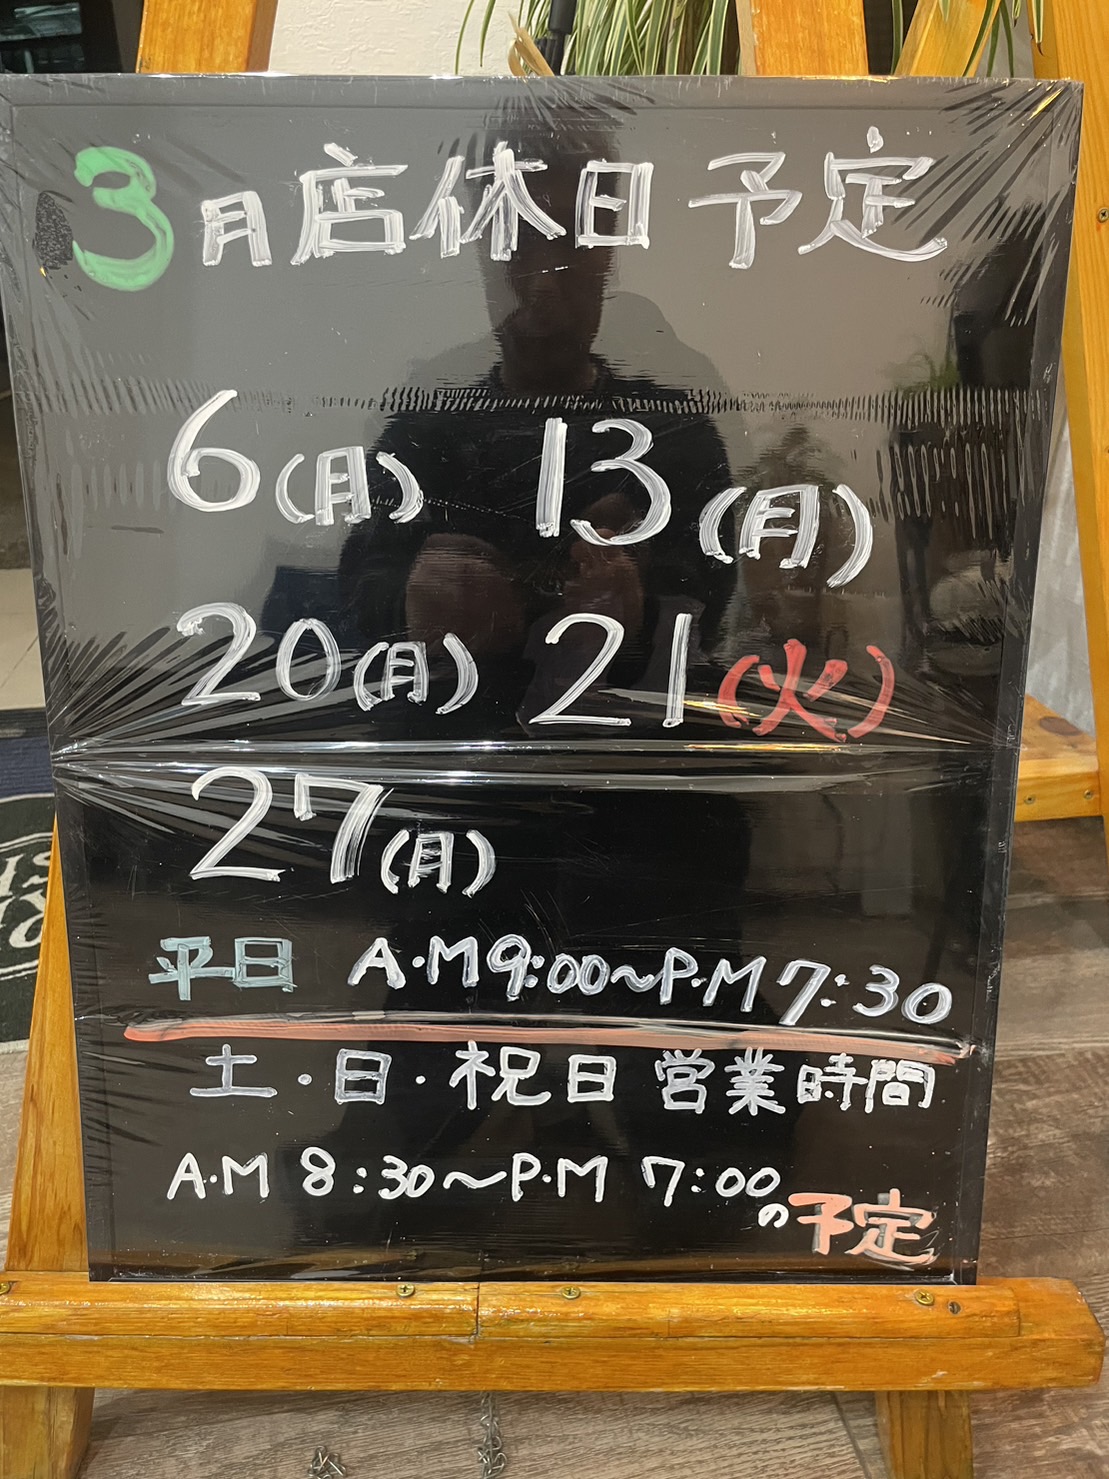 3月店休日予定
6(月) 13(月)
20(月) 21(火)
27(月)
平日 A・M9:00〜P・M7:30
土・日・祝日 営業時間
A・M 8:30〜P・M 7:00
の予定